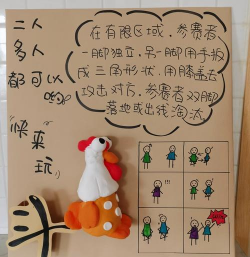 二人
多人
都可以哟
快来
玩
在有限区域,参赛者
一脚独立,另一脚用手扳
成三角形状,用膝盖去
攻击对方,参赛者双脚
落地或出线淘汰
斗